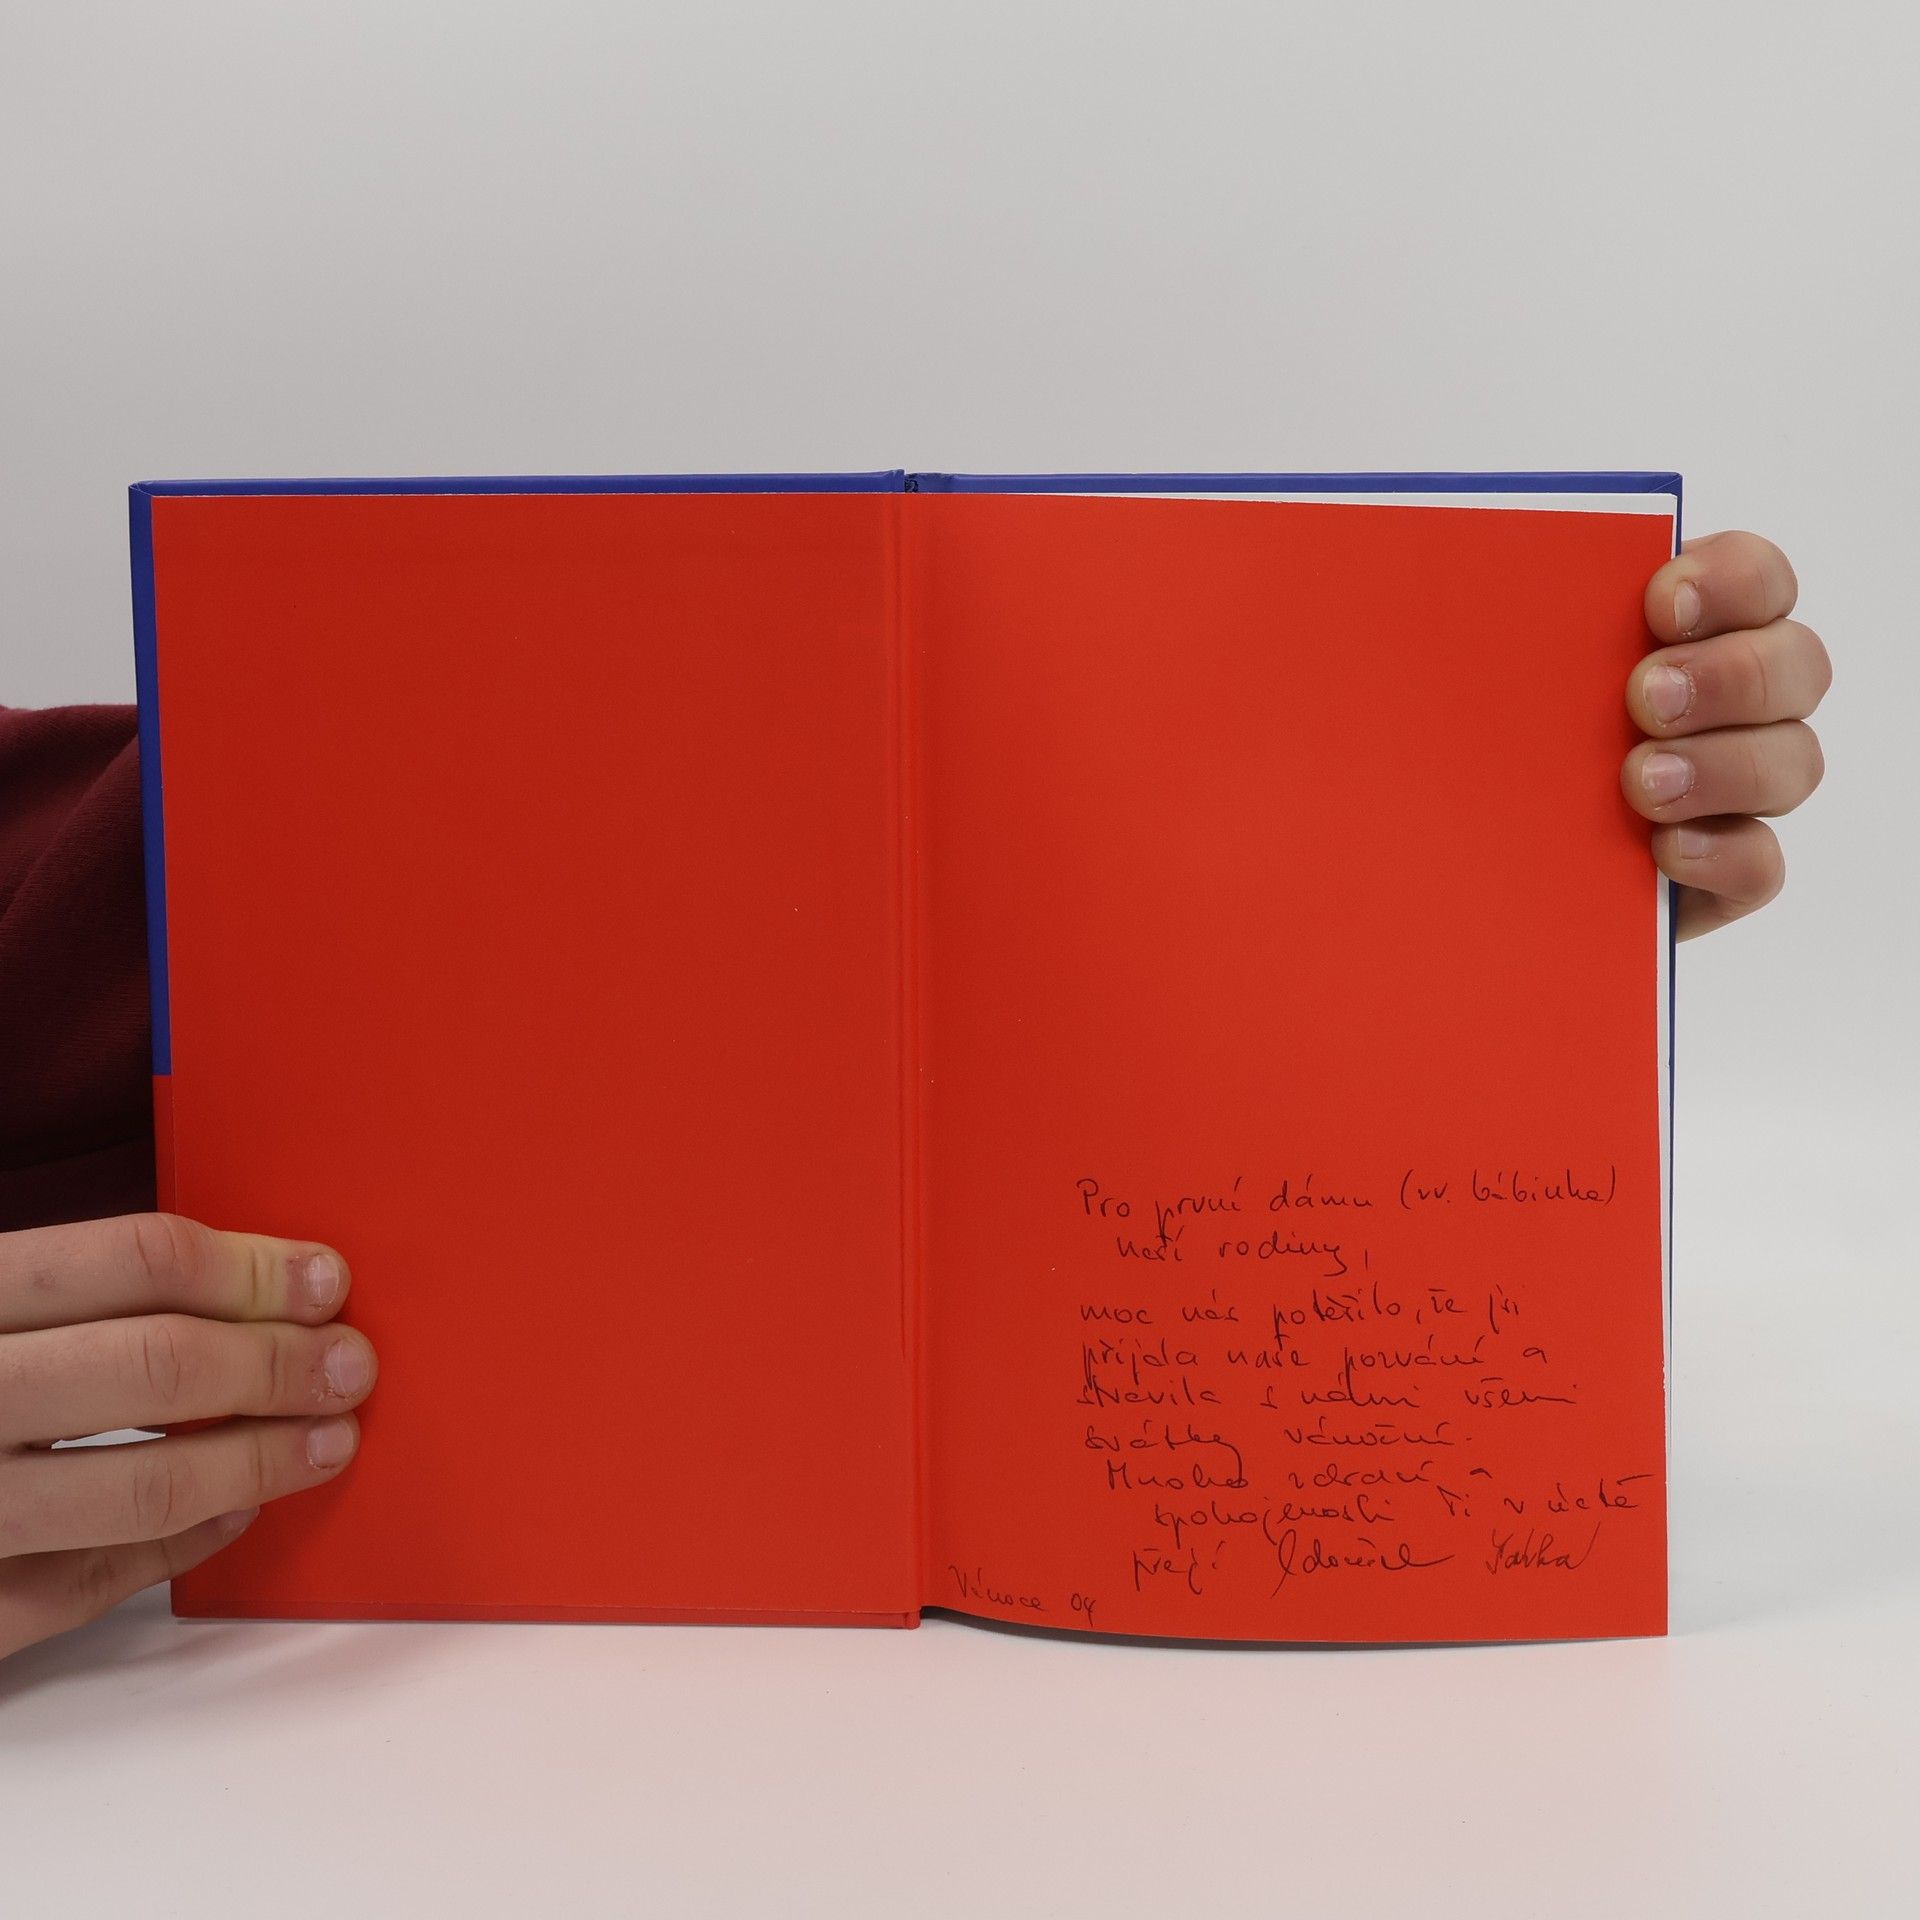 Pro první dámu (vv. bábinka)
naší rodiny,
moc nás potěšilo, že jsi
přijala naše pozvání a
strávila s námi všemi
svátky vánoční.
Mnoho zdraví a
spokojenosti Ti v úctě
přejí Šárka
Vánoce 04